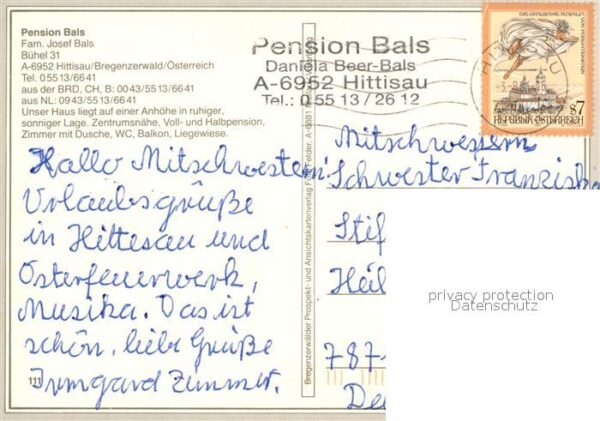 Pension Bals
Fam. Josef Bals
Bühel 31
A-6952 Hittisau/Bregenzerwald/Österreich
Tel. 05513/6641
aus der BRD, CH, B: 0043/5513/6641
aus NL: 0943/5513/6641
Unser Haus liegt auf einer Anhöhe in ruhiger,
sonniger Lage. Zentrumsnähe, Voll- und Halbpension,
Zimmer mit Dusche, WC, Balkon, Liegewiese.
Pension Bals
Daniela Beer-Bals
A-6952 Hittisau
Tel.: 0 55 13 / 26 12
S7
REPUBLIK ÖSTERREICH
Hallo Mitschwestern
Urlaubsgrüße
in Hittesau und
Osterfeuerwerk,
Musika. Das ist
schön, liebe Grüße
Irmgard Zimmer.
111
Bregenzerwälder Prospekt- und Ansichtskartenverlag
Mitschwestern
Schwester Franzisk
Stif
Heil
787-
De
privacy protection
Datenschutz